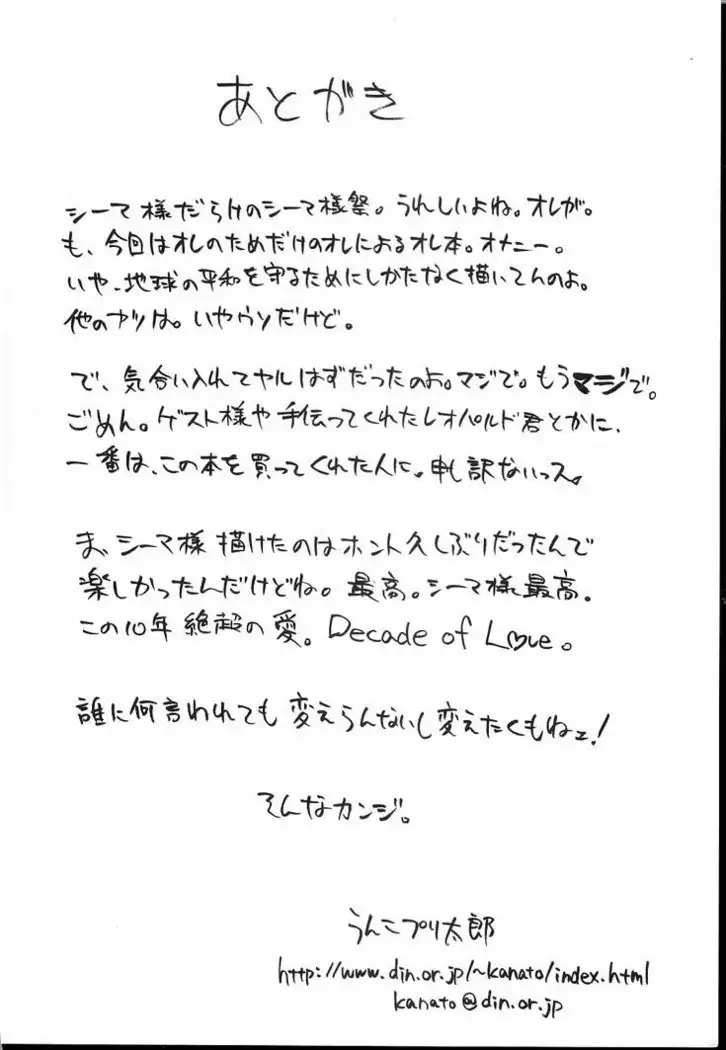 あとがき
シーマ様だらけのシーマ様祭。うれしいよね。オレが。
も、今回はオレのためだけのオレによるオレ本。オナニー。
いや、地球の平和を守るためにしかたなく描いてんのよ。
他のヤツは。いやウソだけど。
で、気合い入れてヤルはずだったのよ。マジで。もうマジで。
ごめん。ゲスト様や手伝ってくれたレオパルド君とかに、
一番は、この本を買ってくれた人に。申し訳ないっス。
ま、シーマ様描けたのはホント久しぶりだったんで
楽しかったんだけどね。最高。シーマ様最高。
この10年絶超の愛。Decade of Love。
誰に何言われても変えらんないし変えたくもねェ!
そんなカンジ。
うんこプリ太郎
http://www.din.or.jp/~kanato/index.html
kanato@din.or.jp